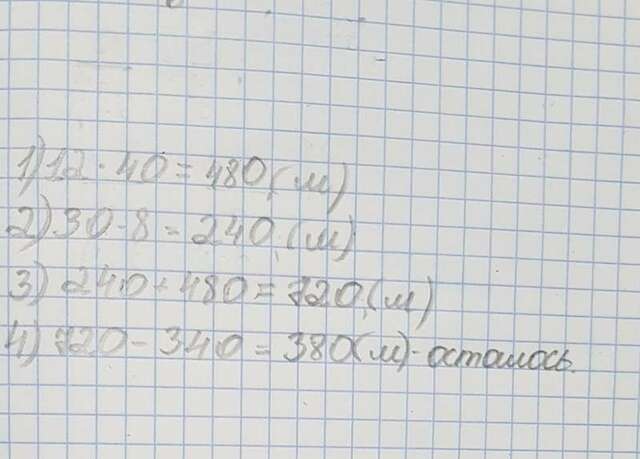 1) 12 · 40 = 480 (м)
2) 30 · 8 = 240 (м)
3) 240 + 480 = 720 (м)
4) 720 - 340 = 380 (м) - осталось.